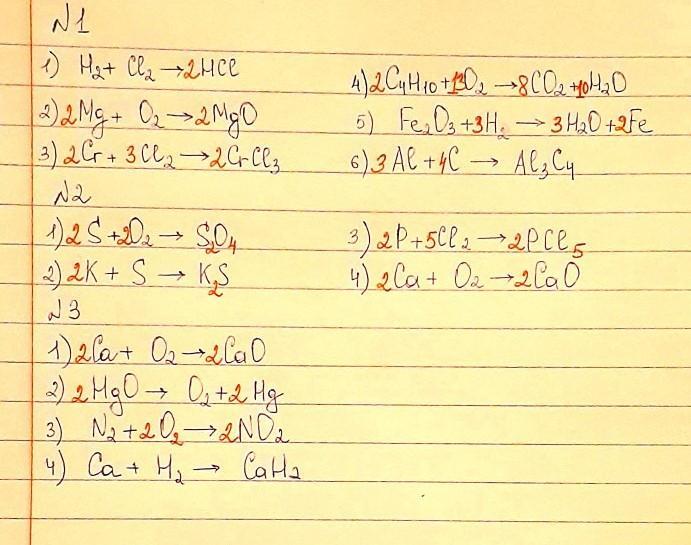 №1
1) H₂ + Cl₂ → 2HCl
2) 2Mg + O₂ → 2MgO
3) 2Cr + 3Cl₂ → 2CrCl₃
4) 2C₄H₁₀ + 13O₂ → 8CO₂ + 10H₂O
5) Fe₂O₃ + 3H₂ → 3H₂O + 2Fe
6) 3Al + 4C → Al₃C₄
№2
1) 2S + 2O₂ → S₂O₄
2) 2K + S → K₂S
3) 2P + 5Cl₂ → 2PCl₅
4) 2Ca + O₂ → 2CaO
№3
1) 2Ca + O₂ → 2CaO
2) 2HgO → O₂ + 2Hg
3) N₂ + 2O₂ → 2NO₂
4) Ca + H₂ → CaH₂